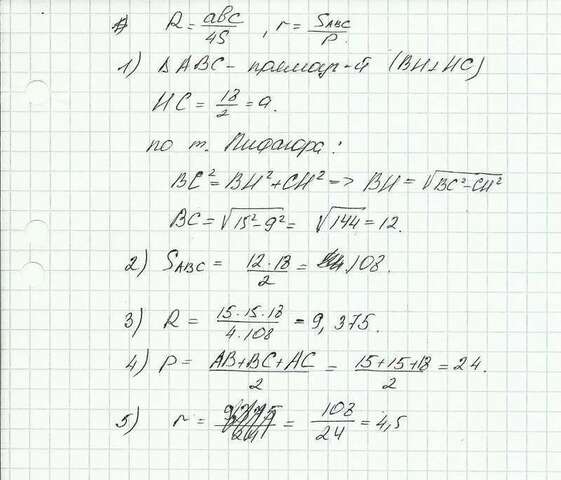 R = abc/4S , r = S_ABC/P.
1) Δ ABC - прямоуг-й (BH⊥HC)
HC = 18/2 = 9.
по т. Пифагора:
BC² = BH² + CH² => BH = √(BC² - CH²)
BC = √(15² - 9²) = √144 = 12.
2) S_ABC = 12 · 18/2 = 108.
3) R = 15 · 15 · 18/4 · 108 = 9,375.
4) P = AB + BC + AC/2 = 15 + 15 + 18/2 = 24.
5) r = 108/24 = 4,5